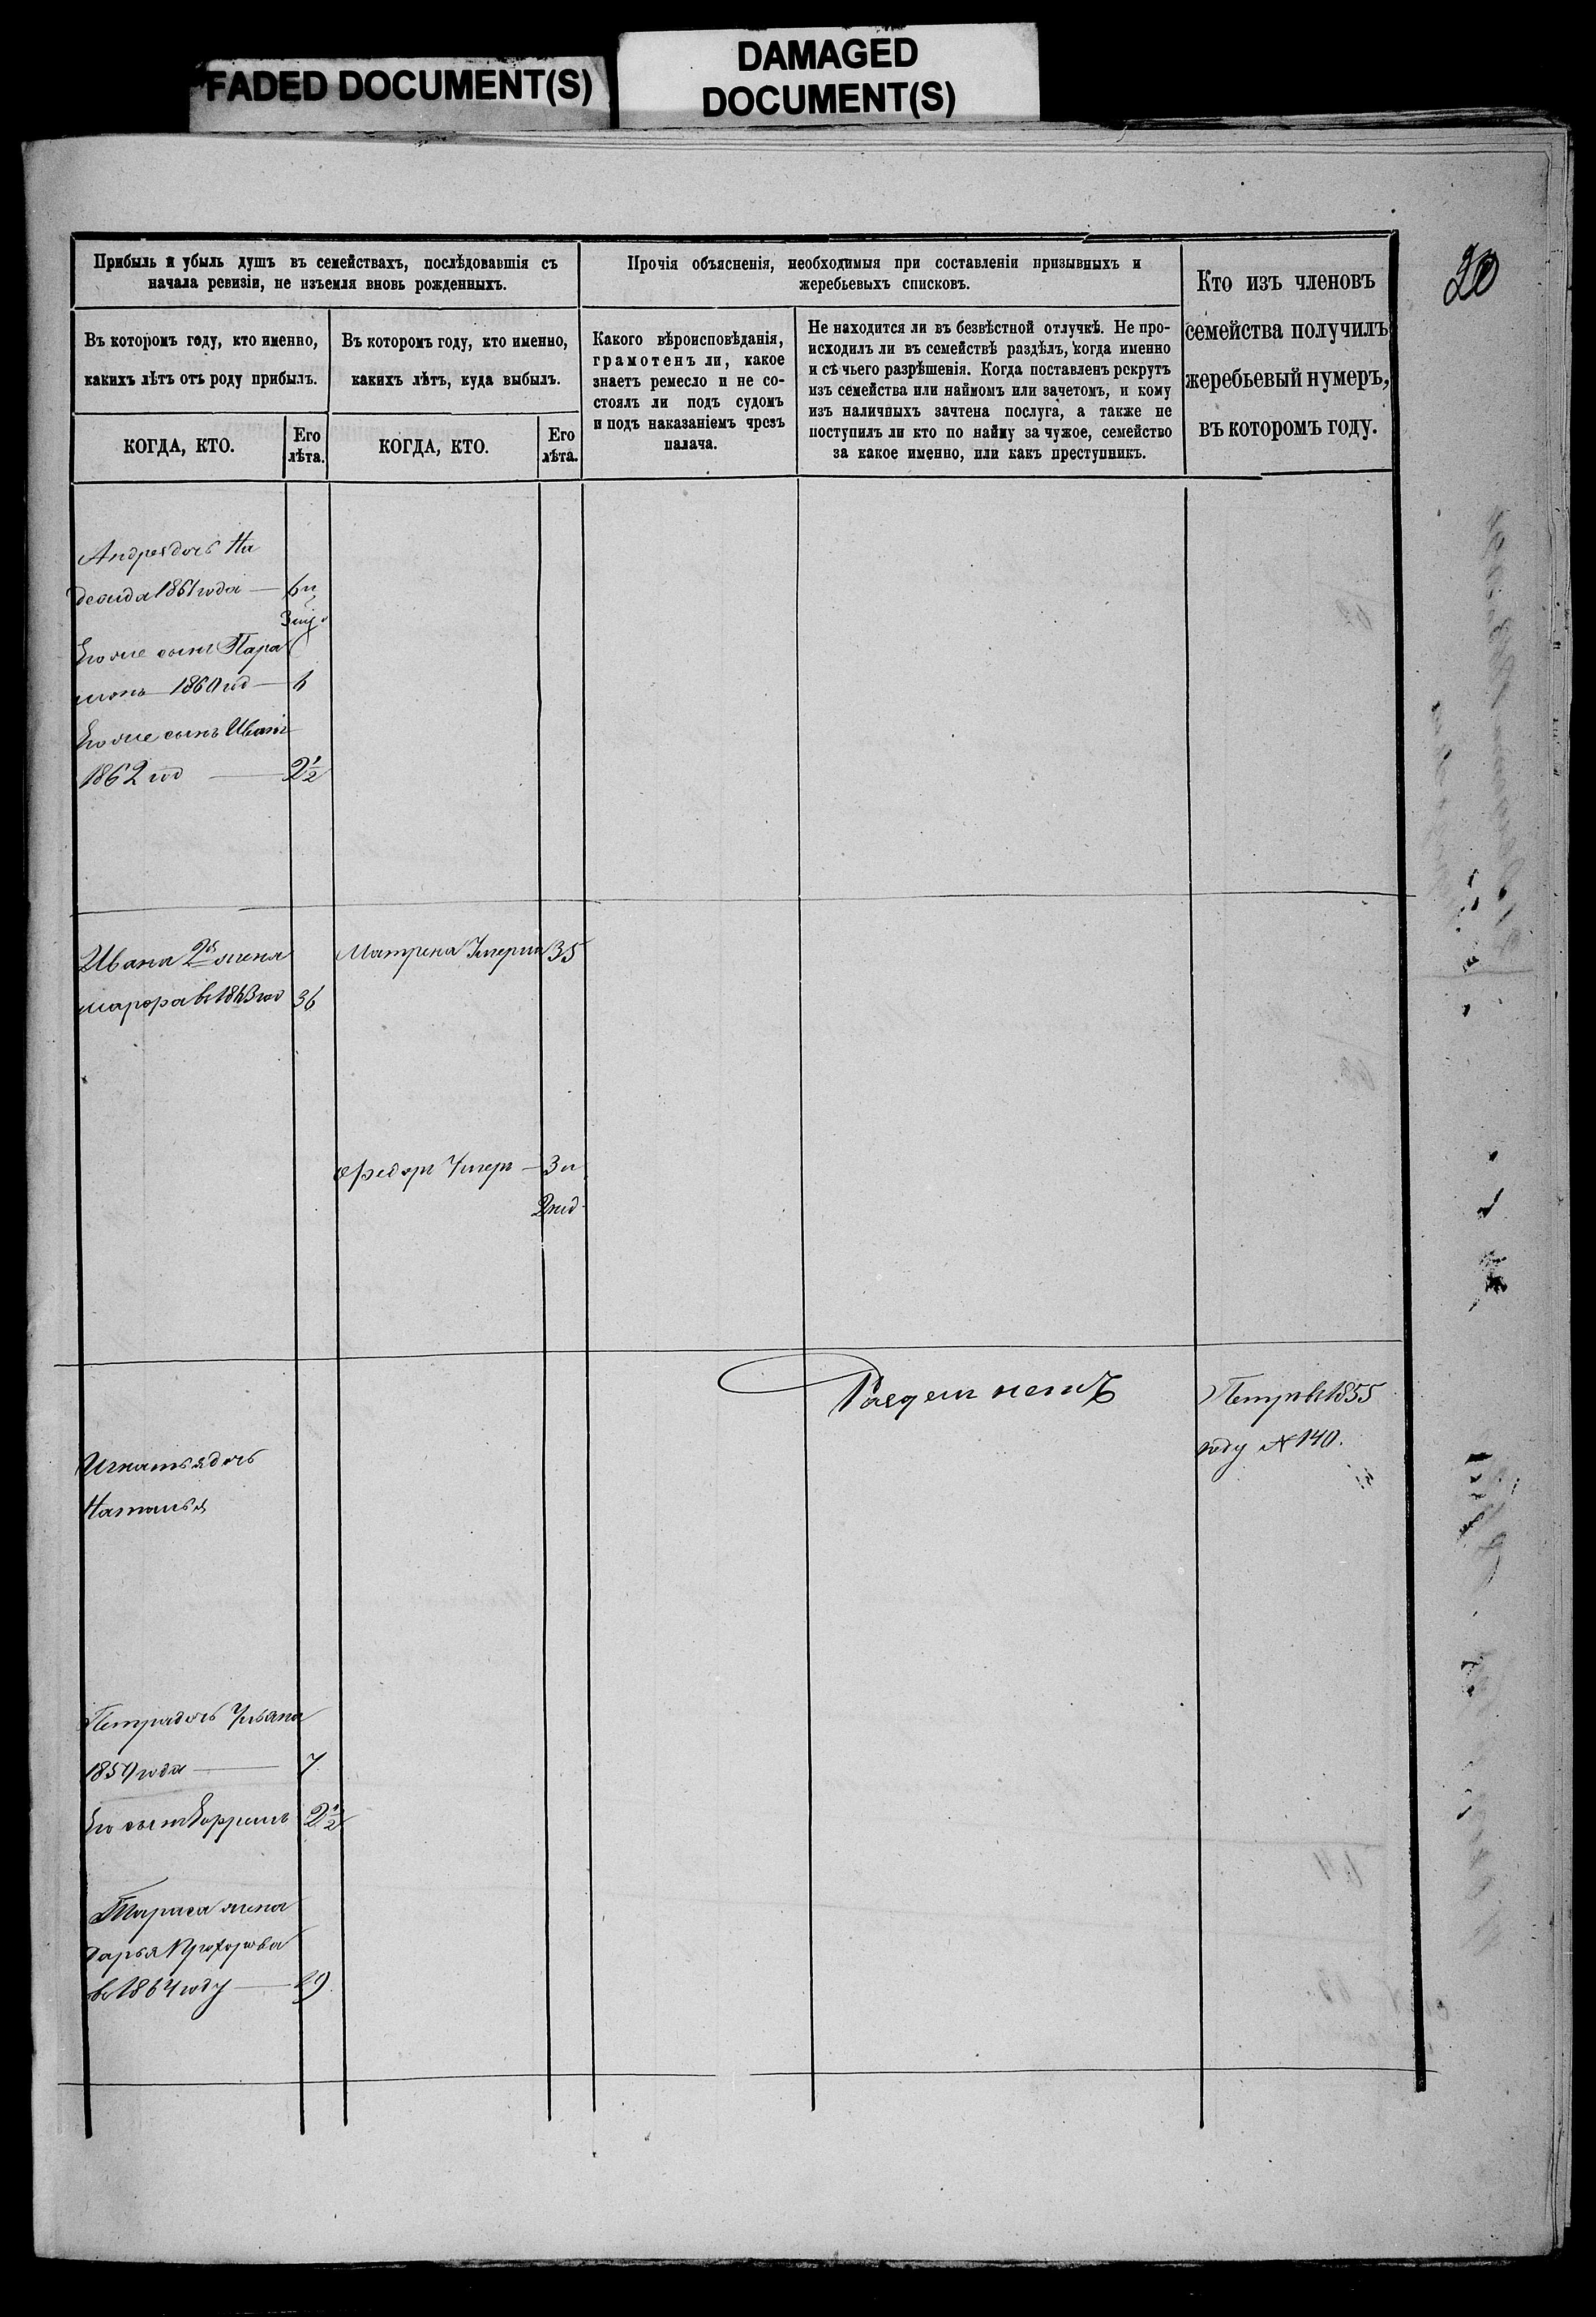 FADED DOCUMENT(S)
DAMAGED
DOCUMENT(S)
20
Прибыль и убыль душъ въ семействахъ, послѣдовавшія съ
начала ревизіи, не изъемля вновь рожденныхъ.
Въ которомъ году, кто именно,
какихъ лѣтъ отъ роду прибылъ.
КОГДА, КТО.
Его
лѣта.
Въ которомъ году, кто именно,
какихъ лѣтъ, куда выбылъ.
КОГДА, КТО.
Его
лѣта.
Прочія объясненія, необходимыя при составленіи призывныхъ и
жеребьевыхъ списковъ.
Какого вѣроисповѣданія,
грамотенъ ли, какое
знаетъ ремесло и не со-
стоялъ ли подъ судомъ
и подъ наказаніемъ чрезъ
палача.
Не находится ли въ безвѣстной отлучкѣ. Не про-
исходилъ ли въ семействѣ раздѣлъ, когда именно
и съ чьего разрѣшенія. Когда поставленъ рекрутъ
изъ семейства или наймомъ или зачетомъ, и кому
изъ наличныхъ зачтена послуга, а также не
поступилъ ли кто по найму за чужое, семейство
за какое именно, или какъ преступникъ.
Кто изъ членовъ
семейства получилъ
жеребьевый нумеръ,
въ которомъ году.
Андрея дочь На
дежда 1861 года — 
Его же сынъ Пара
монъ 1860 год —
Его же сынъ Иванъ
1862 год — 2 1/2
Ивана 2я жена
Матрена Умерла 35
36
Федоръ Умеръ — 3 и
Раздел нетъ
Петръ в 1855
году № 140.
Игнатья дочь
Наталья
Петра дочь Ульяна
7
Его сын 2 1/2
Тараса жена
Дарья Прохорова
в 1864 году — 29